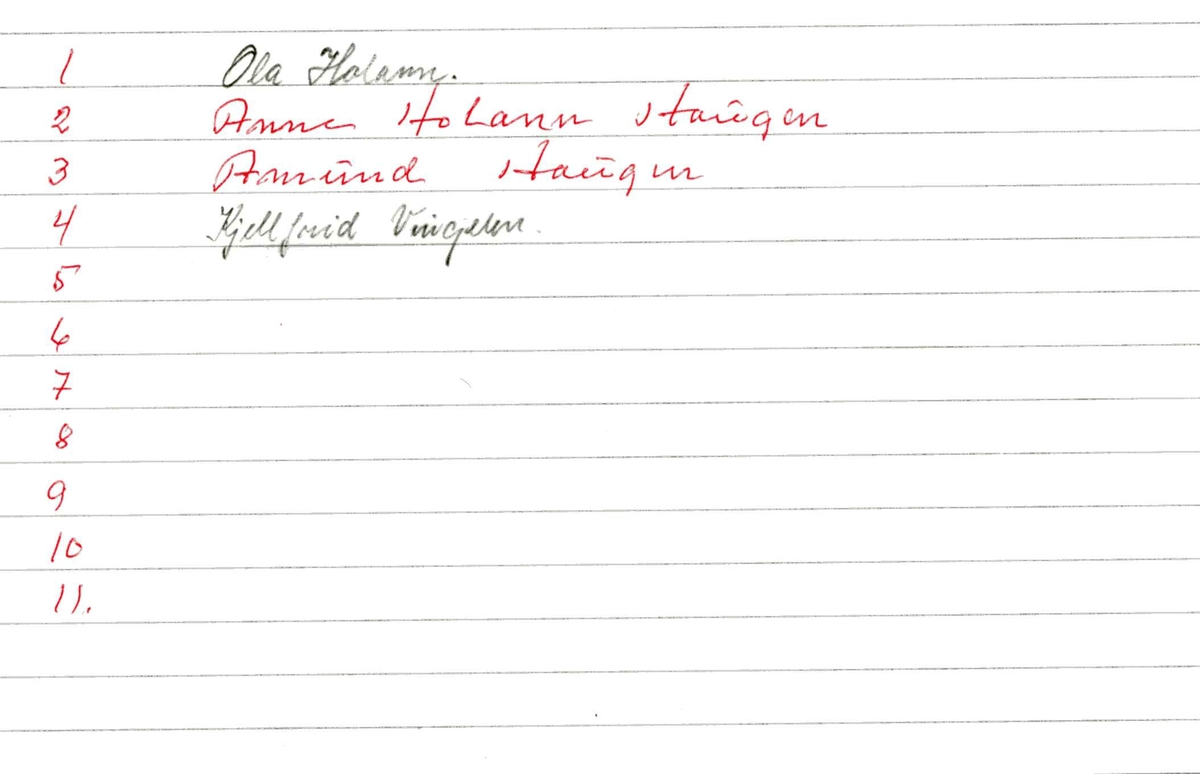 1 Ola Holann.
2 Anne Holann Haugen
3 Amund Haugen
4 Kjellfrid Vingelen.
5
6
7
8
9
10
11.